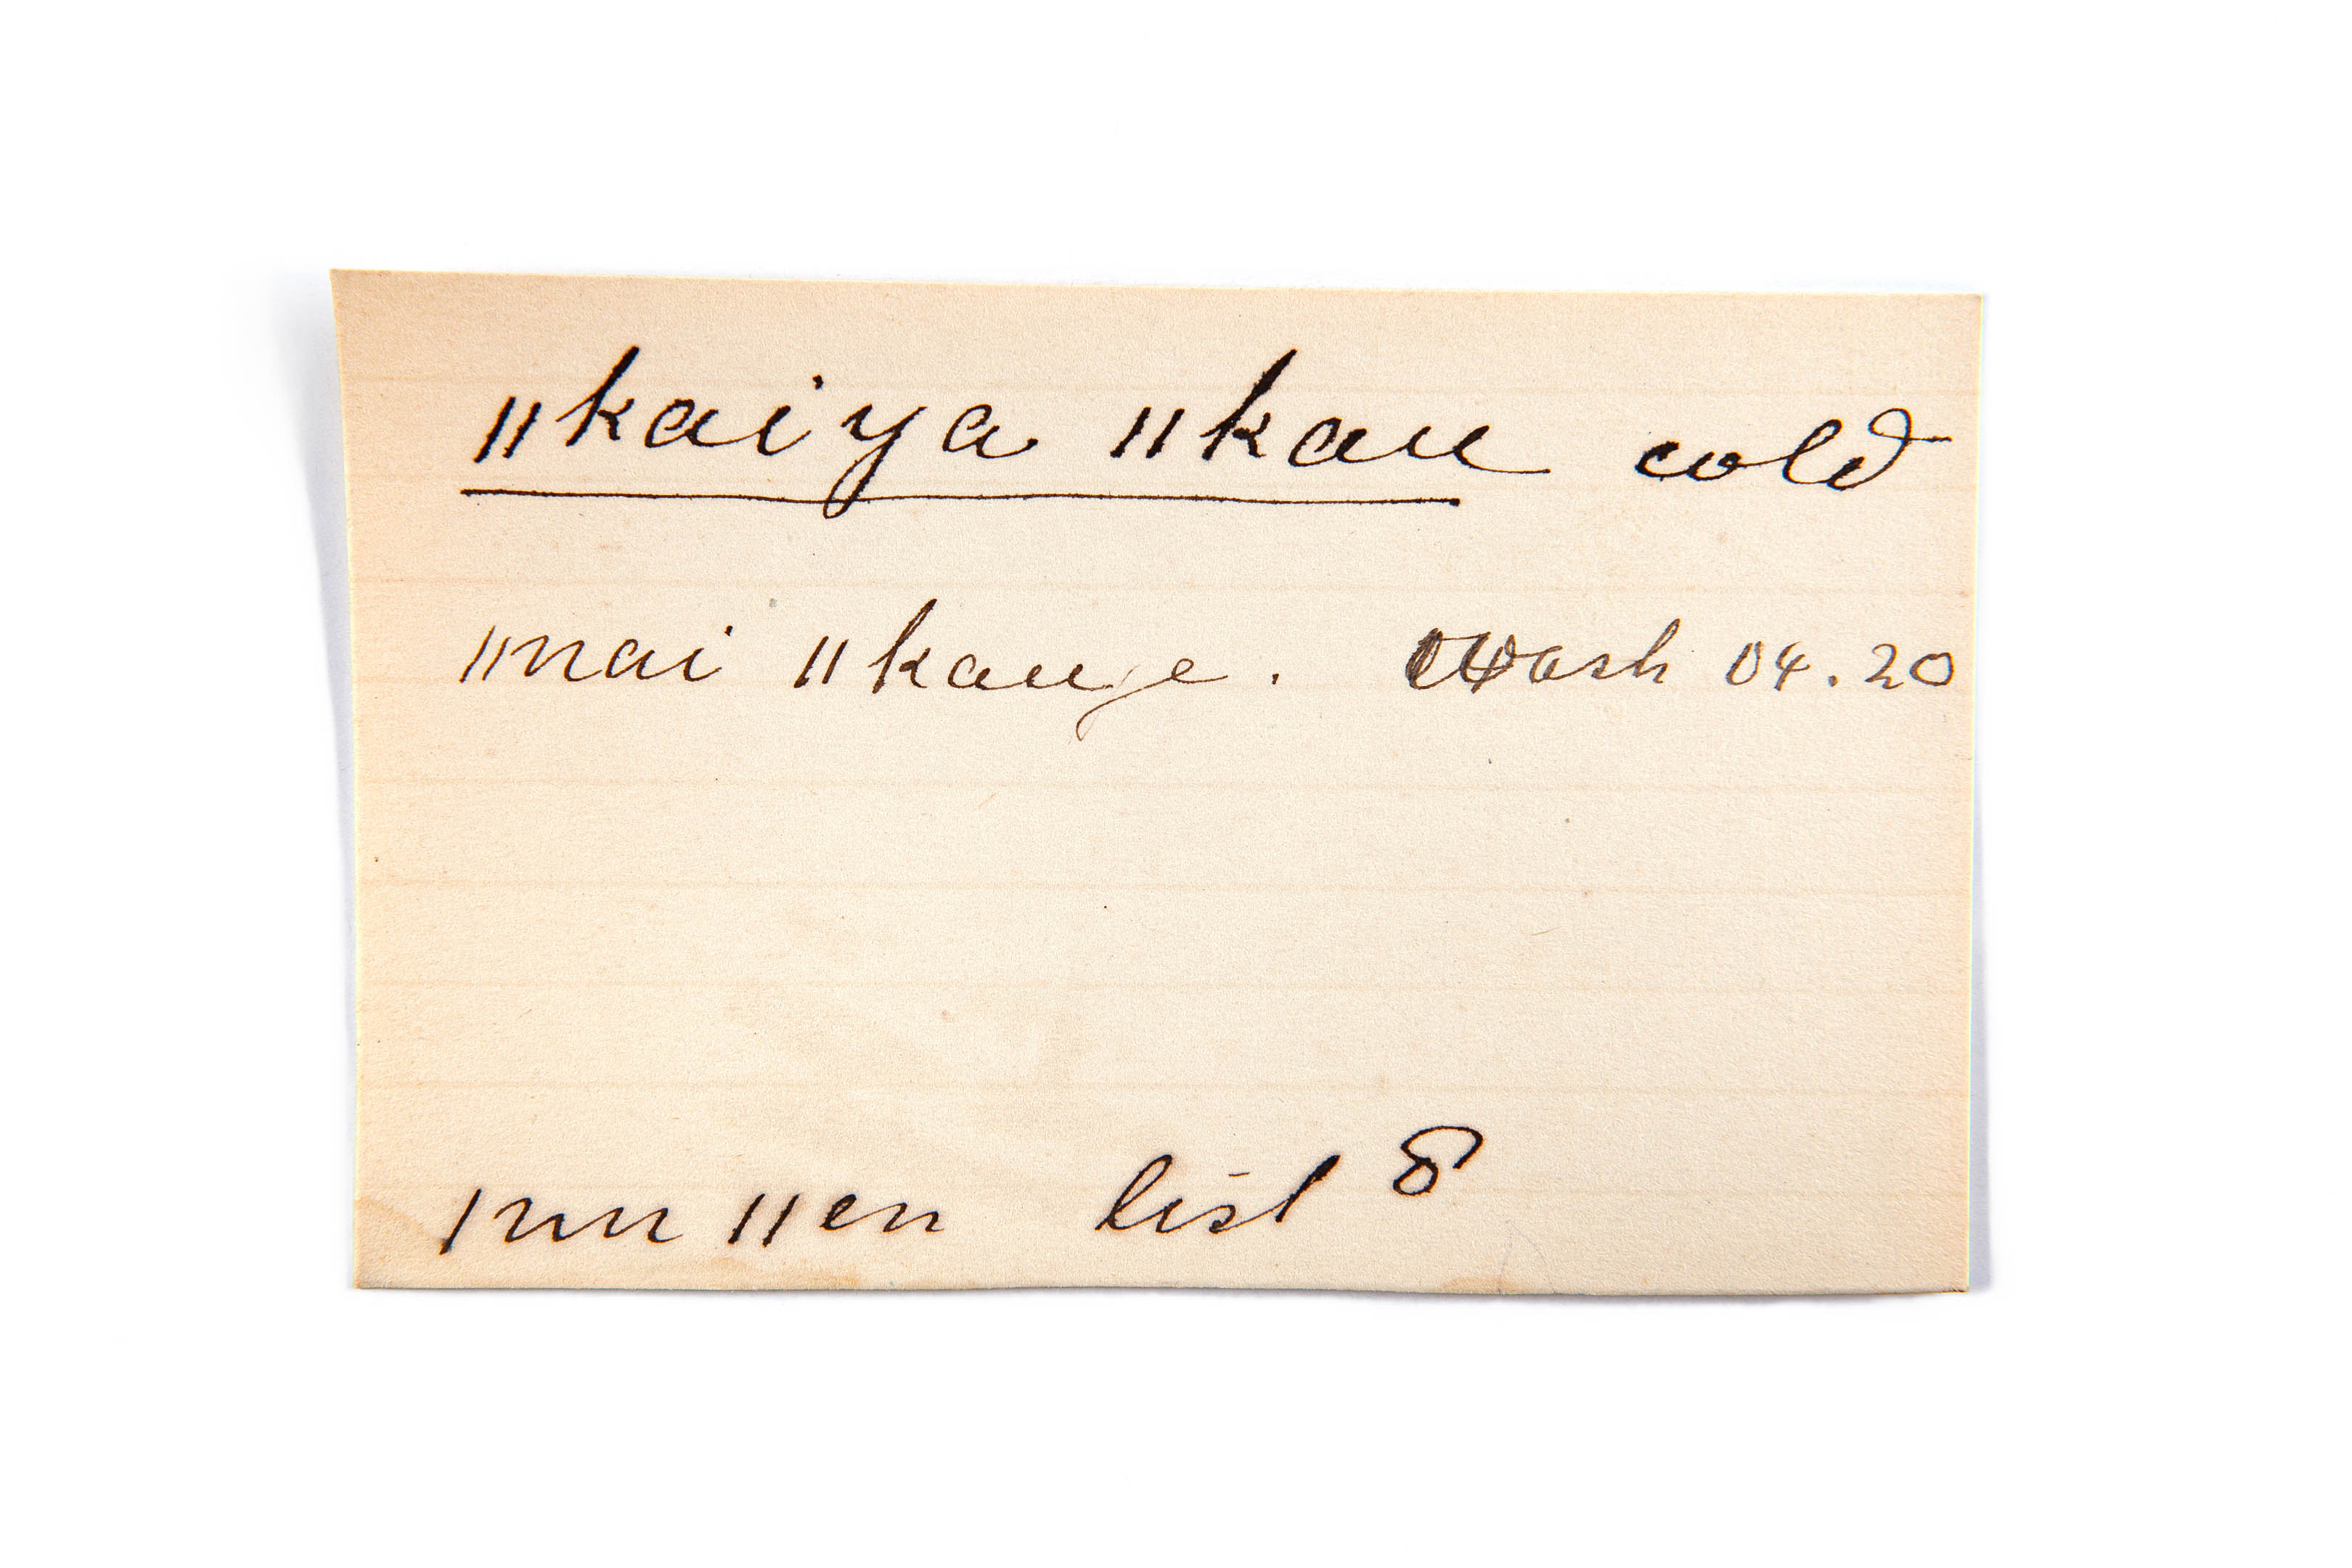 ǁkaiya ǁkau cold
ǁnai ǁkauge. Wash 04.20
ǀnu ǁen list 8